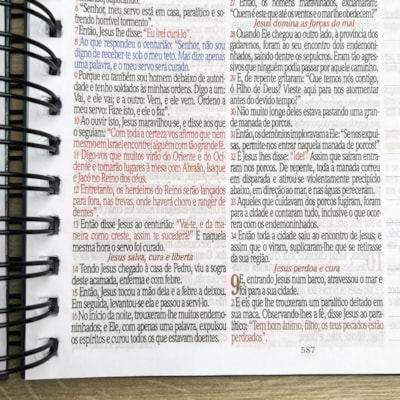 6 "Senhor, meu servo está em casa, paralítico e so-
frendo horrível tormento".
7 Então, Jesus lhe disse: "Eu irei curá-lo".
8 Ao que respondeu o centurião: "Senhor, não sou
digno de receber-te sob o meu teto. Mas dize apenas
uma palavra, e o meu servo será curado.
9 Porque eu também sou homem debaixo de autori-
dade e tenho soldados às minhas ordens. Digo a um:
Vai, e ele vai; e a outro: Vem, e ele vem. Ordeno a
meu servo: Faze isto, e ele o faz".
10 Ao ouvir isto, Jesus maravilhou-se, e disse aos que
o seguiam: "Com toda a certeza vos afirmo que nem
mesmo em Israel encontrei alguém com tão grande fé.
11 Digo-vos que muitos virão do Oriente e do Oci-
dente e tomarão lugares à mesa com Abraão, Isaque
e Jacó no Reino dos céus.
12 Entretanto, os herdeiros do Reino serão lançados
para fora, nas trevas, onde haverá choro e ranger de
dentes".
13 Então disse Jesus ao centurião: "Vai-te, e da ma-
neira como creste, assim te sucederá!" E naquela
mesma hora o servo foi curado.
Jesus salva, cura e liberta
14 Tendo Jesus chegado à casa de Pedro, viu a sogra
deste acamada, enferma e com febre.
15 Então, Jesus tocou a mão dela e a febre a deixou.
Em seguida, levantou-se ela e passou a servi-lo.
16 No início da noite, trouxeram-lhe muitos endemo-
ninhados; e Ele, com apenas uma palavra, expulsou
os espíritos e curou todos os que estavam doentes.
27 Então, os homens maravilhados, exclamaram:
"Quem é este que até os ventos e o mar lhe obedecem?"
Jesus domina as forças do mal
28 Quando Ele chegou ao outro lado, à província dos
gadarenos, foram ao seu encontro dois endemoni-
nhados, saindo dentre os sepulcros. Eram tão agres-
sivos que ninguém podia passar por aquele caminho.
29 E, de repente gritaram: "Que temos nós contigo,
ó Filho de Deus? Vieste aqui para nos atormentar
antes do devido tempo?"
30 Não muito longe deles estava pastando uma gran-
de manada de porcos.
31 Então, os demônios imploravam a Ele: "Se nos expul-
sas, permite-nos entrar naquela manada de porcos!"
32 E Jesus lhes disse: "Ide!" Assim que saíram entra-
ram nos porcos. De repente, toda a manada correu
em disparada e atirou-se violentamente precipício
abaixo, em direção ao mar, e nas águas pereceram.
33 Aqueles que cuidavam dos porcos fugiram, foram
para a cidade e contaram tudo, inclusive o que ocor-
rera com os endemoninhados.
34 Então toda a cidade saiu ao encontro de Jesus; e
assim que o viram, suplicaram-lhe que se retirasse
da sua região.
Jesus perdoa e cura
9 E, entrando Jesus num barco, atravessou o mar e
foi para a sua cidade.
2 E eis que lhe trouxeram um paralítico deitado em
sua maca. Observando-lhes a fé, disse Jesus ao para-
lítico: "Tem bom ânimo, filho; os teus pecados estão
perdoados".
587